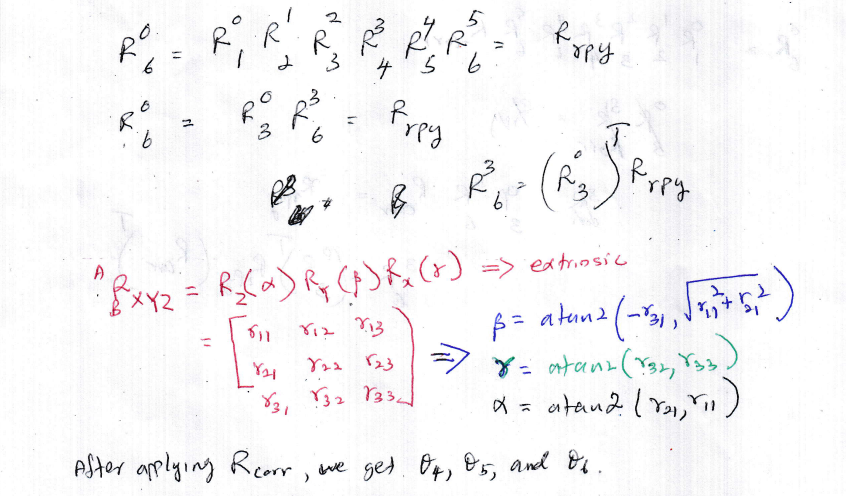 R⁰₆ = R⁰₁ R¹₂ R²₃ R³₄ R⁴₅ R⁵₆ = R_rpy
R⁰₆ = R⁰₃ R³₆ = R_rpy
R³₆ = (R⁰₃)ᵀ R_rpy
ᴬ_B R_XYZ = R_Z(α) R_Y(β) R_x(γ) => extrinsic
= [r₁₁ r₁₂ r₁₃
r₂₁ r₂₂ r₂₃
r₃₁ r₃₂ r₃₃] =>
β = atan2(-r₃₁, √(r₁₁² + r₂₁²))
γ = atan2(r₃₂, r₃₃)
α = atan2(r₂₁, r₁₁)
After applying R_corr, we get θ₄, θ₅, and θ₆.